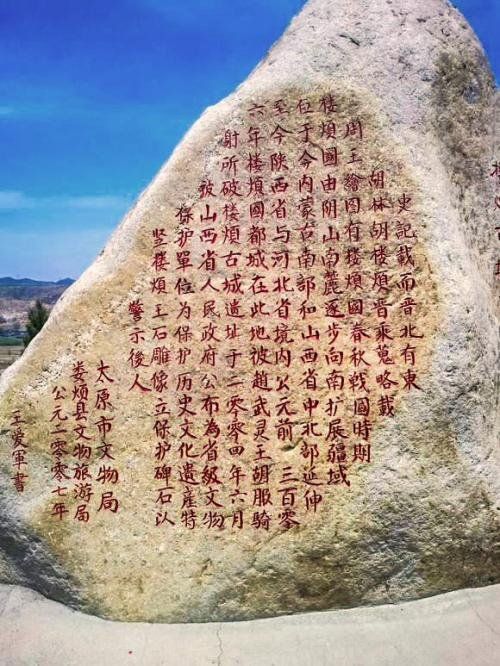 史記載而晋北有東
胡林胡楼煩晋乘蒐略載
周王繪图有楼煩國春秋戦國時期
楼煩國由阴山南麓逐步向南扩展疆域
位于今内蒙古南部和山西省中北部延伸
至今陕西省与河北省境内公元前三百零
六年楼煩國都城在此地被趙武灵王胡服骑
射所破楼煩古城遺址于二零零四年六月
被山西省人民政府公布為省級文物
保护單位为保护历史文化遺産特
竖楼煩王石雕像立保护碑石以
警示後人
太原市文物局
娄烦县文物旅游局
公元二零零七年
王爱軍書